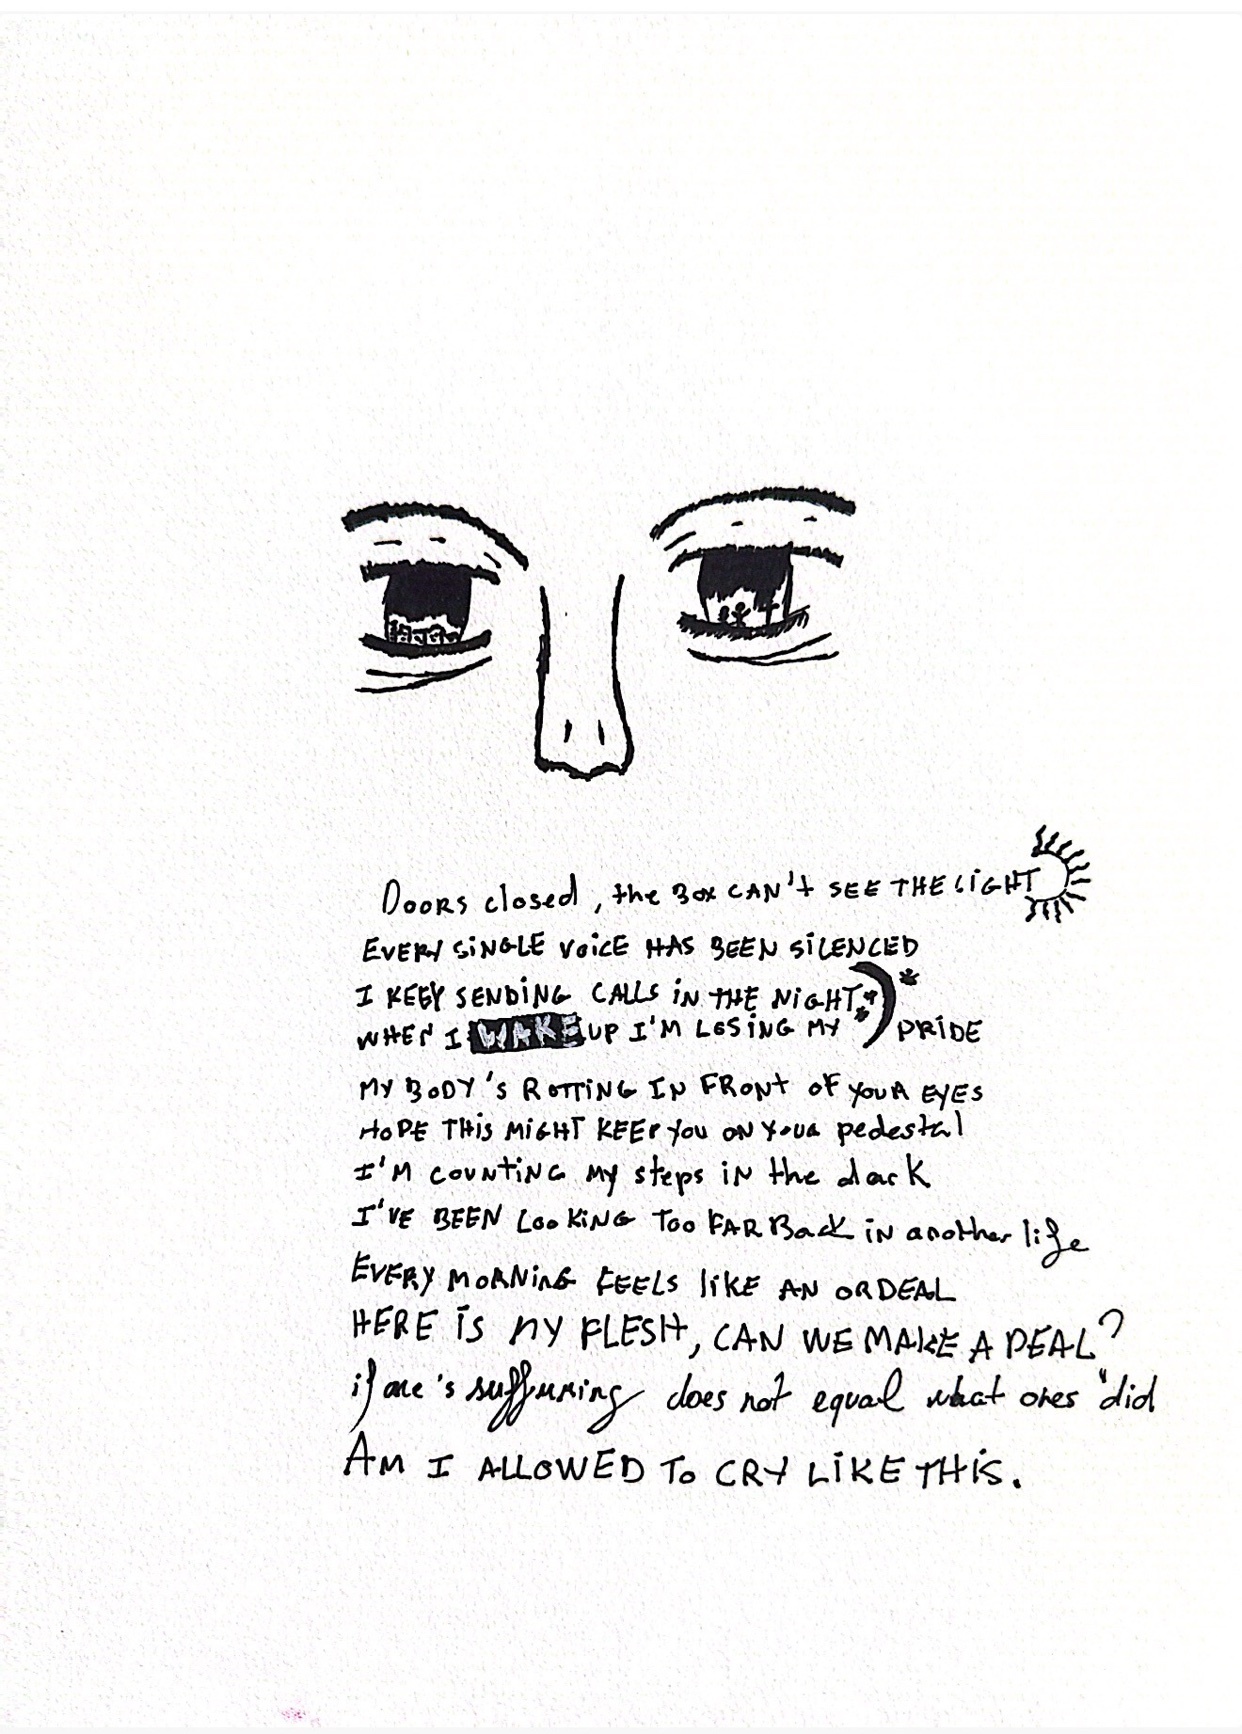 Doors closed, the Box CAN't SEE THE LiGHT
EVERY SiNGLE VoiCE HAS BEEN SiLENCED
I KEEP SENDiNG CALLS iN THE NiGHT
WHEN I WAKE UP I'M LOSiNG MY PRiDE
MY BODY'S ROTTiNG IN FRONt OF YOUR EYES
HOPE THiS MiGHT KEEP YOU ON YOUR pedestal
I'M COUNtiNG MY steps iN the dark
I'VE BEEN LooKiNG Too FAR Back iN another life
EVERY MORNiNG FEELS liKE AN ORDEAL
HERE iS MY FLESH, CAN WE MAKE A DEAL?
if one's suffering does not equal what ones did
AM I ALLOWED To CRY LiKE THiS.